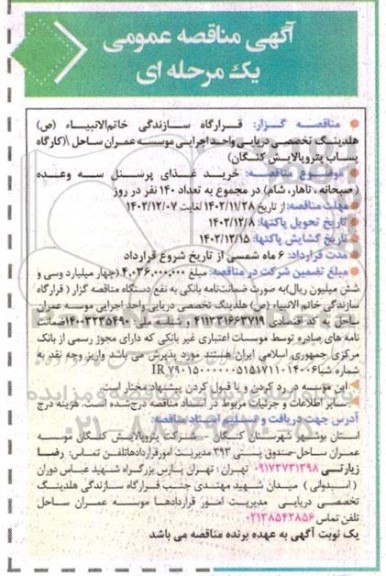 آگهی مناقصه عمومی
یک مرحله ای
مناقصه گزار: قرارگاه سازندگی خاتم‌الانبیاء (ص)
هلدینگ تخصصی دریایی واحد اجرایی موسسه عمران ساحل \(کارگاه
پساب پتروپالایش کنگان)
موضوع مناقصه: خرید غذای پرسنل سه وعده
(صبحانه ، ناهار، شام) در مجموع به تعداد ۱۴۰ نفر در روز
مهلت مناقصه: از تاریخ ۱۴۰۲/۱۱/۲۸ لغایت ۱۴۰۲/۱۲/۰۷
تاریخ تحویل پاکتها: ۱۴۰۲/۱۲/۸
تاریخ گشایش پاکتها: ۱۴۰۲/۱۲/۱۵
مدت قرارداد: ۶ ماه شمسی از تاریخ شروع قرارداد
مبلغ تضمین شرکت در مناقصه: مبلغ ۴,۰۳۶,۰۰۰,۰۰۰ (چهار میلیارد وسی و
شش میلیون ریال)به صورت ضمانت‌نامه بانکی به نفع دستگاه مناقصه گزار ( قرارگاه
سازندگی خاتم الانبیاء (ص) هلدینگ تخصصی دریایی واحد اجرایی موسسه عمران
ساحل به کد اقتصادی ۴۱۱۲۳۱۶۶۳۷۱۹ و شناسه ملی ۱۴۰۰۳۲۳۵۴۹۰ضمانت
نامه های صادره توسط موسسات اعتباری غیر بانکی که دارای مجوز رسمی از بانک
مرکزی جمهوری اسلامی ایران هستند مورد پذیرش می باشد واریز وجه نقد به
شماره شبا
این موسسه در رد کردن و یا قبول کردن پیشنهاد مختار است
سایر اطلاعات و جزئیات مربوط در اسناد مناقصه درج‌شده است. هزینه درج
آدرس جهت دریافت و تسلیم اسناد مناقصه:
استان بوشهر شهرستان کنگان - شرکت پتروپالایش کنگان موسسه
عمران ساحل-صندوق پستی ۳۹۳ مدیریت امورقراردادهاتلفن تماس: رضا
زیارتی ۰۹۱۷۳۷۳۱۳۹۸ تهران: تهران پارس بزرگراه شهید عباس دوران
( اسبدوانی ) میدان شهید مهتدی جنب قرارگاه سازندگی هلدینگ
تخصصی دریایی مدیریت امور قراردادها موسسه عمران ساحل
تلفن تماس ۰۲۱۳۸۵۴۲۸۵۶
یک نوبت آگهی به عهده برنده مناقصه می باشد